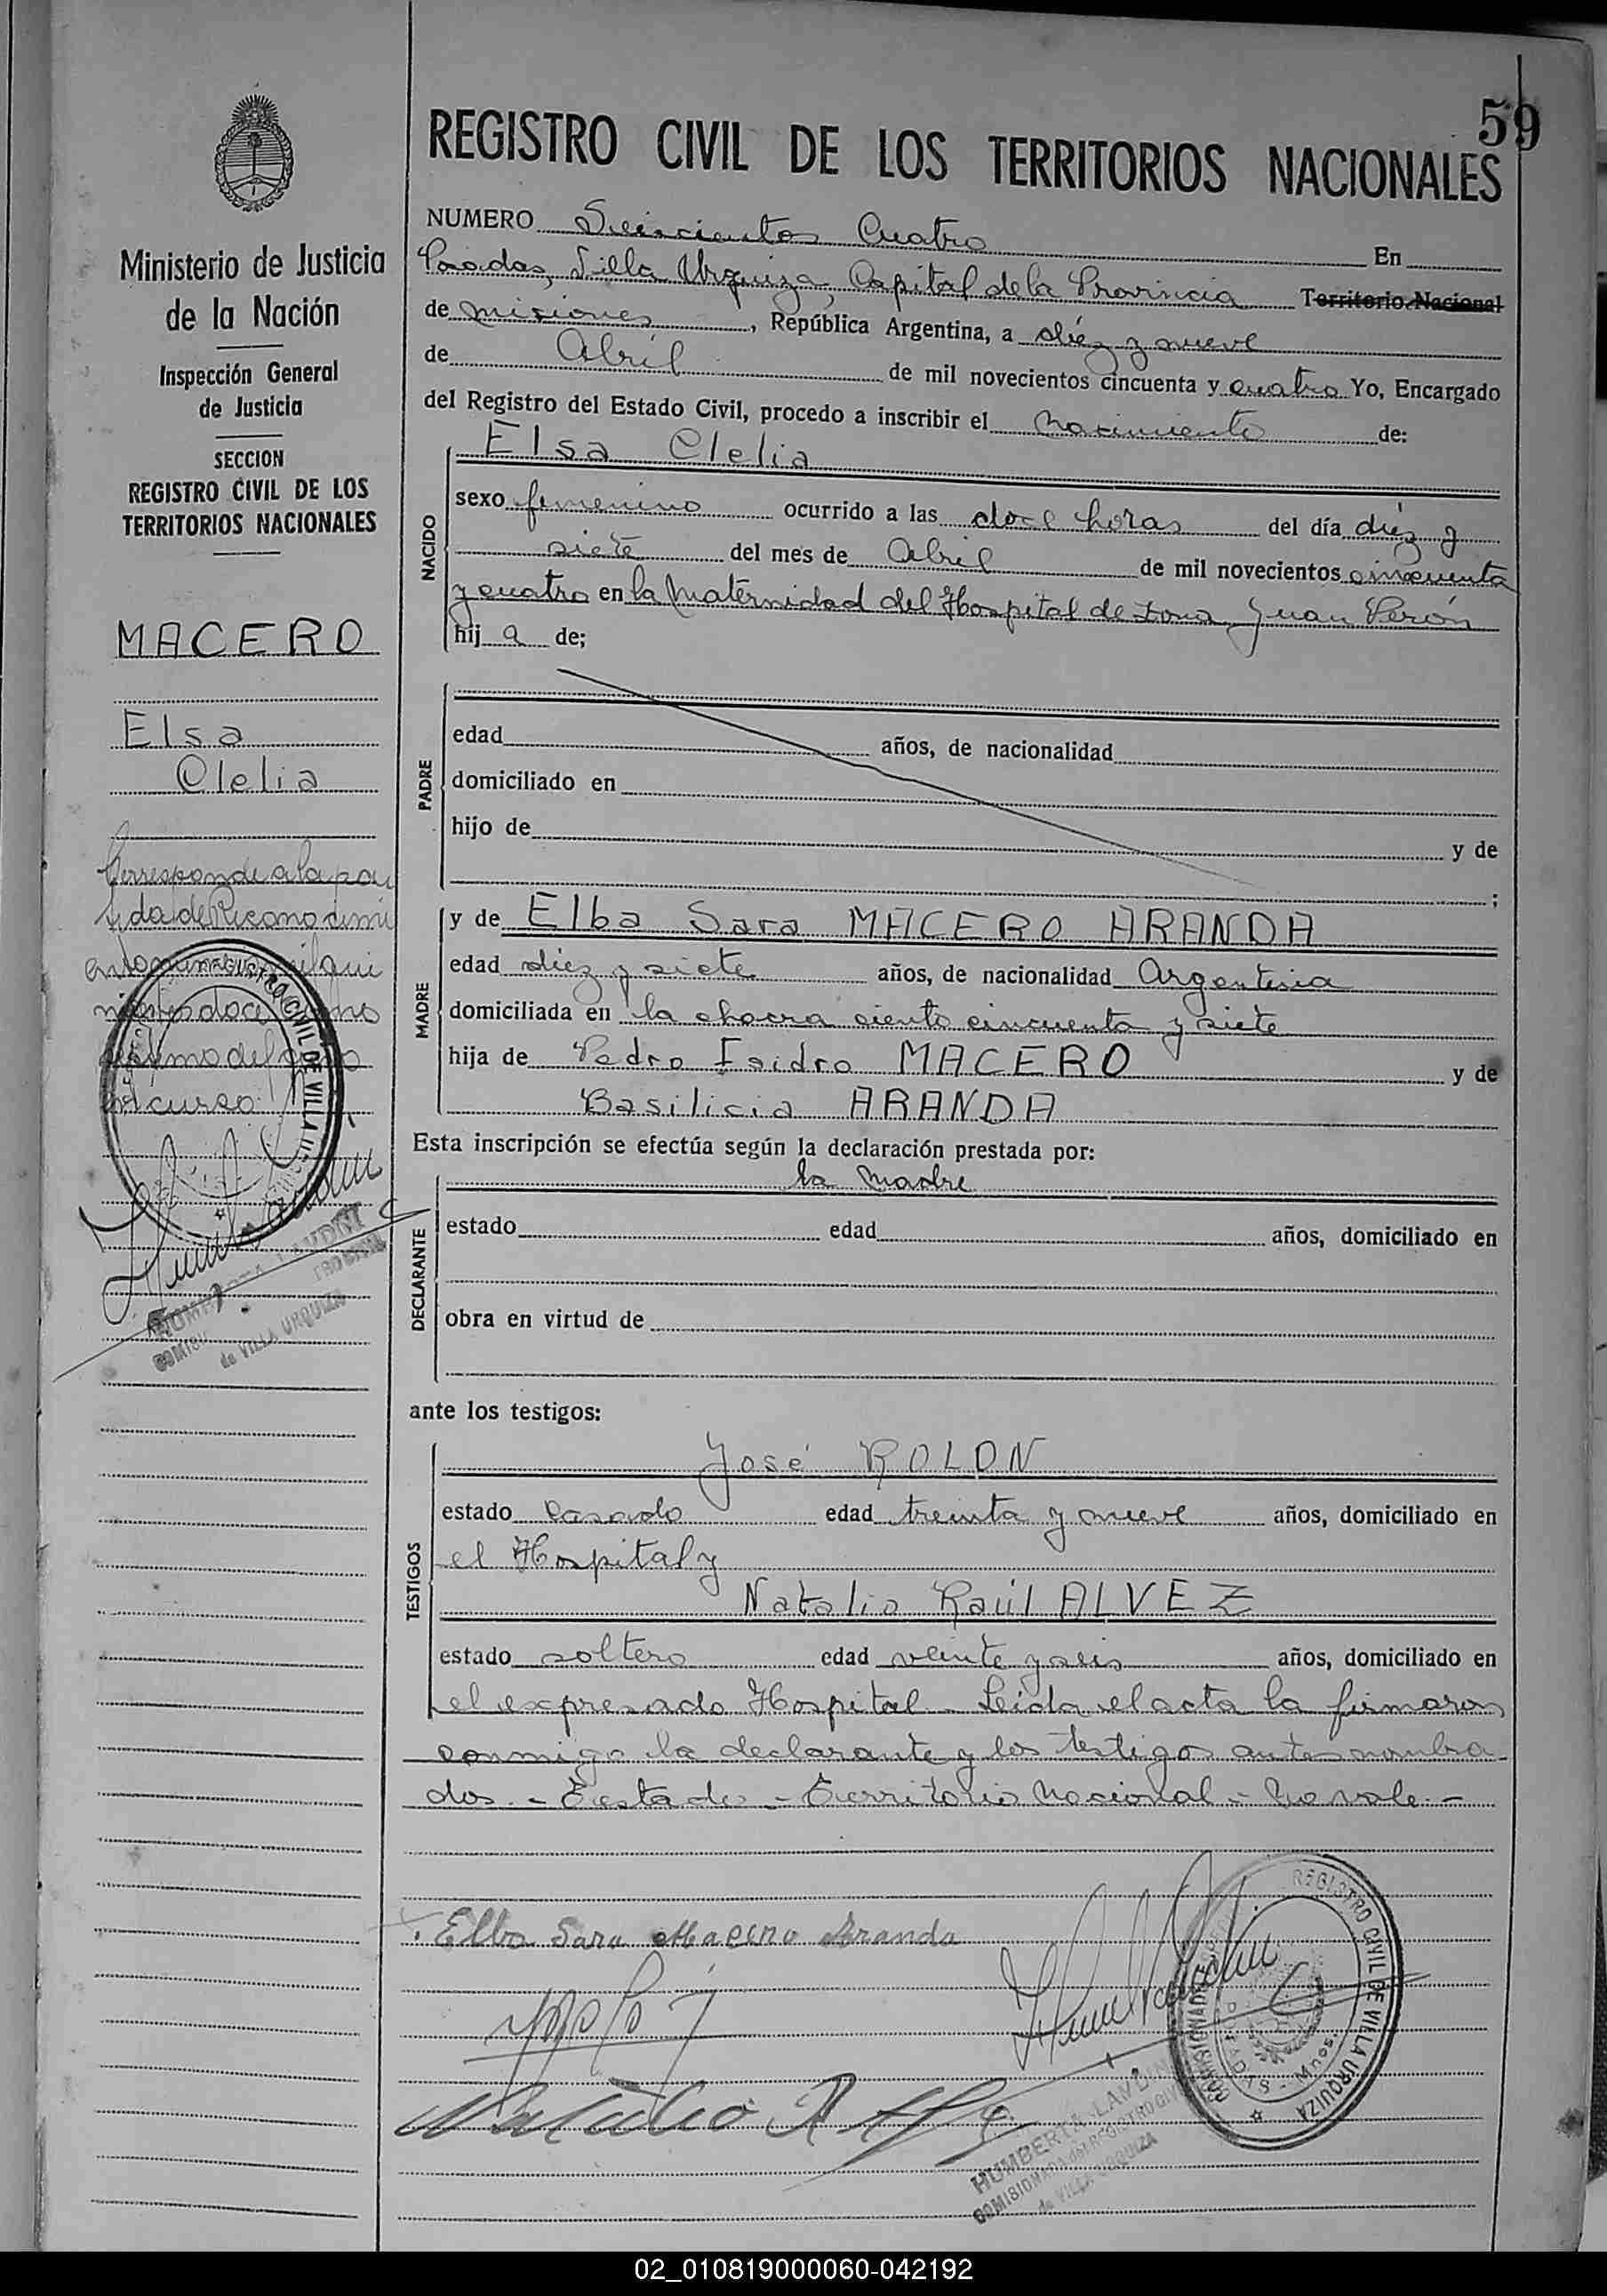 59
REGISTRO CIVIL DE LOS TERRITORIOS NACIONALES
Ministerio de Justicia
de la Nación
Inspección General
de Justicia
SECCION
REGISTRO CIVIL DE LOS
TERRITORIOS NACIONALES
MACERO
Elsa
Clelia
Corresponde a la par
tida de Reconocimi
ento
doce
del
en curso
de VILLA URQUIZA
NUMERO Seiscientos Cuatro En
Posadas, Villa Urquiza, Capital de la Provincia Territorio Nacional
de Misiones, República Argentina, a diéz y nueve
de Abril de mil novecientos cincuenta y cuatro Yo, Encargado
del Registro del Estado Civil, procedo a inscribir el Nacimiento de:
NACIDO
Elsa Clelia
sexo femenino ocurrido a las doce horas del día diéz y
siete del mes de Abril de mil novecientos cincuenta
y cuatro en la Maternidad del Hospital de Zona Juan Perón
hij a de;
PADRE
edad años, de nacionalidad
domiciliado en
hijo de y de
;
MADRE
y de Elba Sara MACERO ARANDA
edad diez y siete años, de nacionalidad Argentina
domiciliada en la chacra ciento cincuenta y siete
hija de Pedro Isidro MACERO y de
Basilicia ARANDA
Esta inscripción se efectúa según la declaración prestada por:
DECLARANTE
la Madre
estado edad años, domiciliado en
obra en virtud de
ante los testigos:
TESTIGOS
José ROLON
estado casado edad treinta y nueve años, domiciliado en
el Hospital y
Natalio Raúl ALVEZ
estado soltero edad veinte y seis años, domiciliado en
el expresado Hospital - Leida el acta la firmaron
conmigo la declarante y los testigos antes nombra-
dos. - Testado - Territorio Nacional - No vale. -
Elba Sara Macero Aranda
REGISTRO CIVIL DE VILLA URQUIZA
POSADAS - Mnes.
HUMBERTA LANDINI
COMISIONADA del REGISTRO CIVIL
de VILLA URQUIZA
02_010819000060-042192